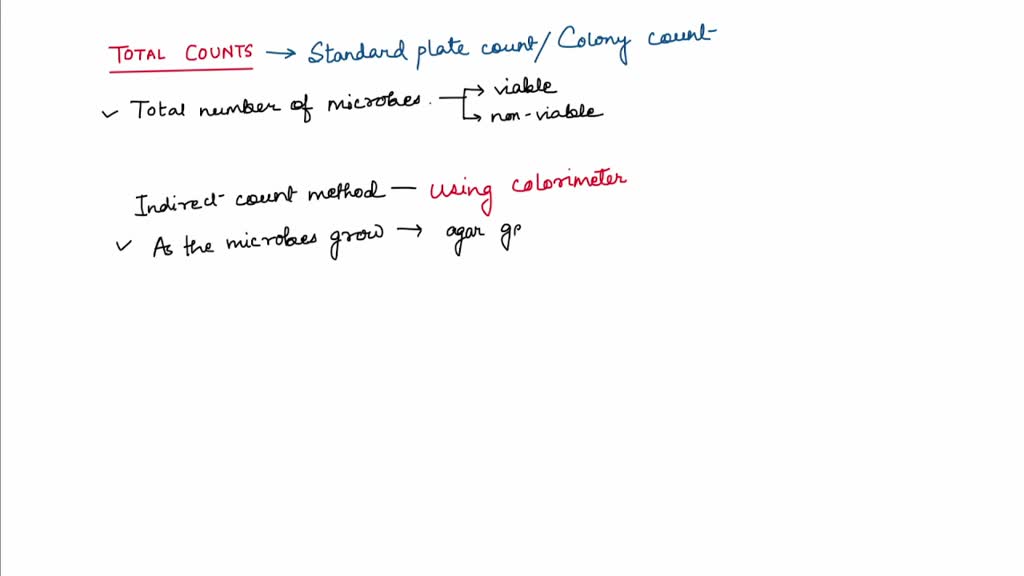 TOTAL COUNTS → Standard plate count/Colony count
✓ Total number of microbes. → viable
→ non-viable
Indirect count method — using colorimeter
✓ As the microbes grow → agar